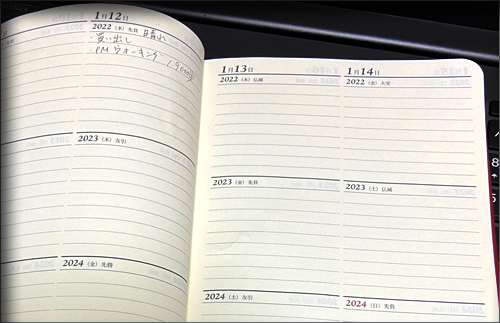 1月12日
2022（水）先負 晴れ
・買い出し
・PM ウォーキング
2023（木）友引
2024（金）先勝
1月13日
2022（木）仏滅
2023（金）先負
2024（土）友引
1月14日
2022（金）大安
2023（土）仏滅
2024（日）先負
8
5